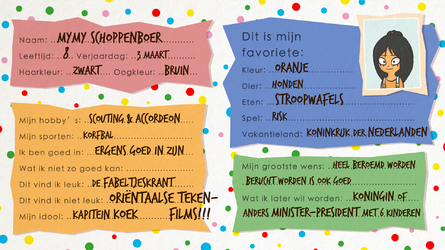 Naam: MYMY SCHOPPENBOER
Leeftijd: 8 Verjaardag: 3 MAART
Haarkleur: ZWART Oogkleur: BRUIN
Mijn hobby's: SCOUTING & ACCORDEON
Mijn sporten: KORFBAL
Ik ben goed in: ERGENS GOED IN ZIJN
Wat ik niet zo goed kan:
Dit vind ik leuk: DE FABELTJESKRANT
Dit vind ik niet leuk: ORIËNTAALSE TEKEN-
Mijn idool: KAPITEIN KOEK FILMS!!!
Dit is mijn
favoriete:
Kleur: ORANJE
Dier: HONDEN
Eten: STROOPWAFELS
Spel: RISK
Vakantieland: KONINKRIJK DER NEDERLANDEN
Mijn grootste wens: HEEL BEROEMD WORDEN
BERUCHT WORDEN IS OOK GOED
Wat ik later wil worden: KONINGIN OF
ANDERS MINISTER-PRESIDENT MET 6 KINDEREN